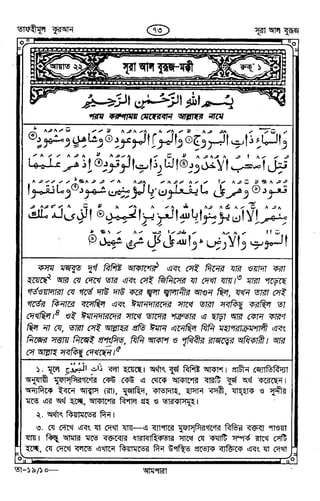 তাফহীমুল কুরআন ৭৩ সূরা আল বুরূজ
আয়াত ২২ সূরা আল বুরূজ-মক্কী রুকূ' ১
بِسْمِ اللهِ الرَّحْمٰنِ الرَّحِيْمِ
পরম করুণাময় মেহেরবান আল্লাহর নামে
وَالسَّمَاءِ ذَاتِ الْبُرُوْجِ ۙ وَالْيَوْمِ الْمَوْعُوْدِ ۙ وَشَاهِدٍ وَّمَشْهُوْدٍ ۙ
قُتِلَ اَصْحٰبُ الْاُخْدُوْدِ ۙ النَّارِ ذَاتِ الْوَقُوْدِ ۙ اِذْ هُمْ عَلَيْهَا
قُعُوْدٌ ۙ وَّهُمْ عَلٰى مَا يَفْعَلُوْنَ بِالْمُؤْمِنِيْنَ شُهُوْدٌ ۙ وَمَا نَقَمُوْا
مِنْهُمْ اِلَّا اَنْ يُّؤْمِنُوْا بِاللهِ الْعَزِيْزِ الْحَمِيْدِ ۙ الَّذِيْ لَهٗ مُلْكُ
السَّمٰوٰتِ وَالْاَرْضِ ۚ وَاللهُ عَلٰى كُلِّ شَيْءٍ شَهِيْدٌ ۙ
কসম মজবুত দুর্গ বিশিষ্ট আকাশের১ এবং সেই দিনের যার ওয়াদা করা
হয়েছে২ আর যে দেখে তার এবং সেই জিনিসের যা দেখা যায়।৩ মারা পড়েছে
গর্তওয়ালারা যে গর্তে দাউ দাউ করে জ্বলা জ্বালানীর আগুন ছিল, যখন তারা সেই
গর্তের কিনারে বসেছিল এবং ঈমানদারদের সাথে তারা সবকিছু করছিল তা
দেখছিল।৪ ওই ঈমানদারদের সাথে তাদের শত্রুতার এ ছাড়া আর কোন কারণ
ছিল না যে, তারা সেই আল্লাহর প্রতি ঈমান এনেছিল যিনি মহাপরাক্রমশালী এবং
নিজের সত্তায় নিজেই প্রশংসিত, যিনি আকাশ ও পৃথিবীর রাজত্বের অধিকারী। আর
সে আল্লাহ সবকিছু দেখছেন।৫
১. মূলে ذَاتِ الْبُرُوْجِ বলা হয়েছে। অর্থাৎ বুর্জ বিশিষ্ট আকাশ। প্রাচীন জ্যোতির্বিদ্যা
অনুযায়ী মুফাস্সিরগণের কেউ কেউ এ থেকে আকাশের বারটি বুর্জ অর্থ করেছেন।
অন্যদিকে ইবনে আব্বাস (রা), মুজাহিদ, কাতাদাহ, হাসান বসরী, যাহ্হাক ও সুদ্দীর
মতে এর অর্থ হচ্ছে, আকাশের বিশাল গ্রহ ও তারকাসমূহ।
২. অর্থাৎ কিয়ামতের দিন।
৩. যে দেখে এবং যা দেখা যায়—এ ব্যাপারে মুফাস্সিরগণের বিভিন্ন বক্তব্য পাওয়া
যায়। কিন্তু আমার মতে বক্তব্যের ধারাবাহিকতার সাথে যে কথাটি সম্পর্ক রাখে সেটি
হচ্ছে, যে দেখে বলতে এখানে কিয়ামতের দিন উপস্থিত প্রত্যেক ব্যক্তিকে এবং যা দেখা
তা-১৯/১০— আমপারা